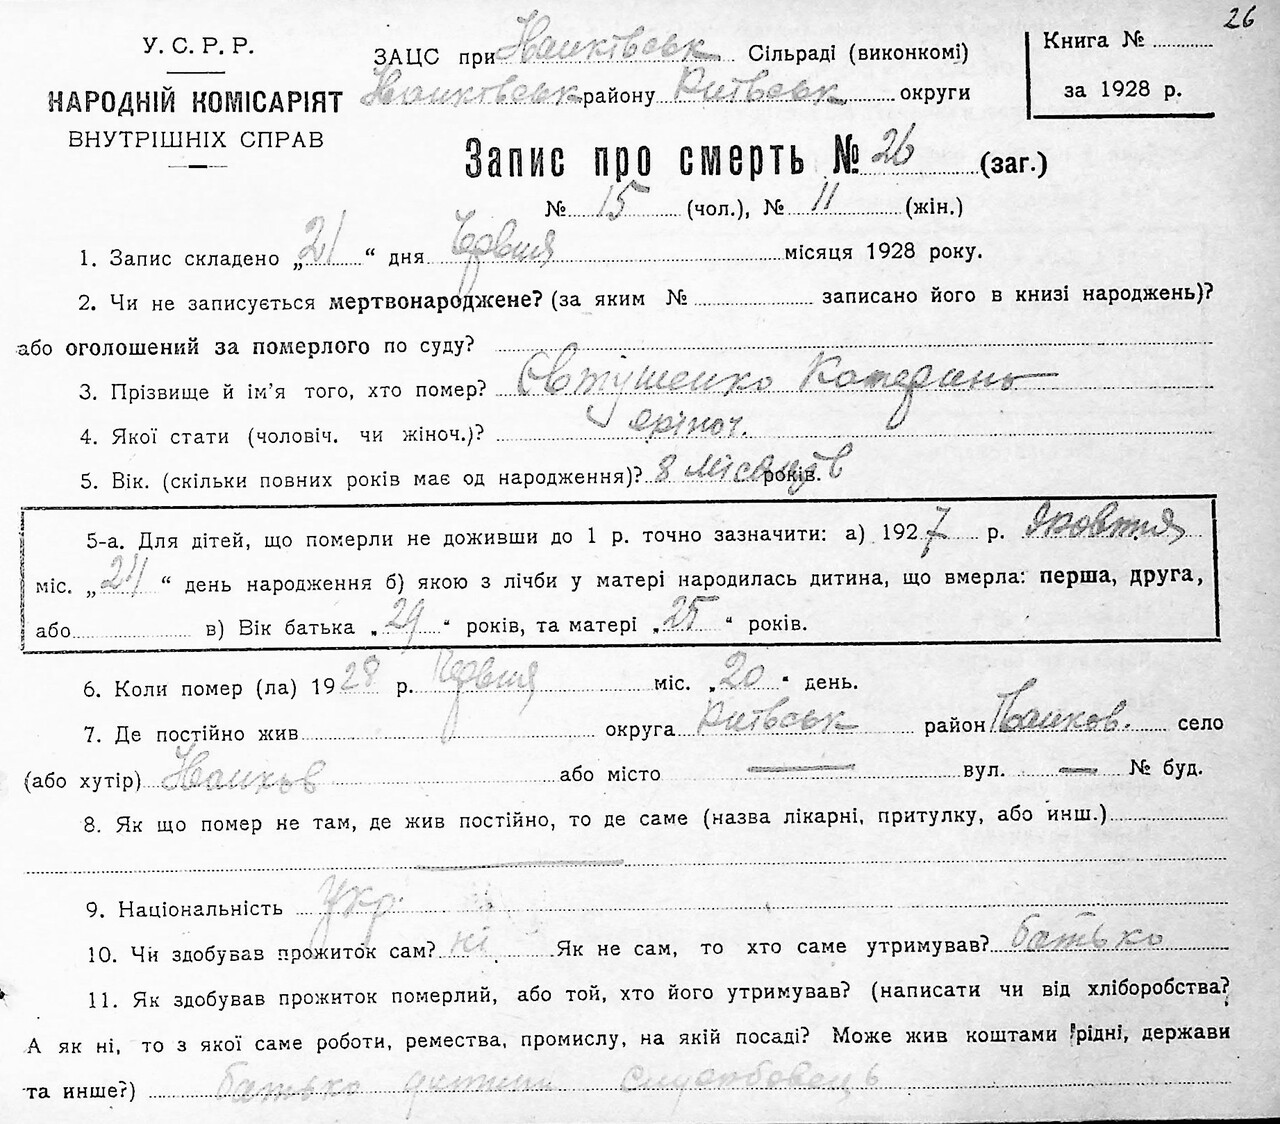 26
У. С. Р. Р.
НАРОДНІЙ КОМІСАРІЯТ
ВНУТРІШНІХ СПРАВ
ЗАЦС при Сільраді (виконкомі)
району округи
Книга №
за 1928 р.
Запис про смерть № 26 (заг.)
№ 15 (чол.), № 11 (жін.)
1. Запис складено „21“ дня Червня місяця 1928 року.
2. Чи не записується мертвонароджене? (за яким № записано його в книзі народжень)?
або оголошений за померлого по суду?
3. Прізвище й ім'я того, хто помер? Євтушенко Катерина
4. Якої стати (чоловіч. чи жіноч.)? жіноч.
5. Вік. (скільки повних років має од народження)? 8 місяців років.
5-а. Для дітей, що померли не доживши до 1 р. точно зазначити: а) 1927 р. Жовтня
міс. „24“ день народження б) якою з лічби у матері народилась дитина, що вмерла: перша, друга,
або в) Вік батька „29“ років, та матері „25“ років.
6. Коли помер (ла) 1928 р. Червня міс. „20“ день.
7. Де постійно жив округа район село
(або хутір) або місто — вул. — № буд.
8. Як що помер не там, де жив постійно, то де саме (назва лікарні, притулку, або инш.)
—
9. Національність Укр.
10. Чи здобував прожиток сам? ні Як не сам, то хто саме утримував? батько
11. Як здобував прожиток померлий, або той, хто його утримував? (написати чи від хліборобства?
А як ні, то з якої саме роботи, ремества, промислу, на якій посаді? Може жив коштами рідні, держави
та инше?) батько дитини службовець